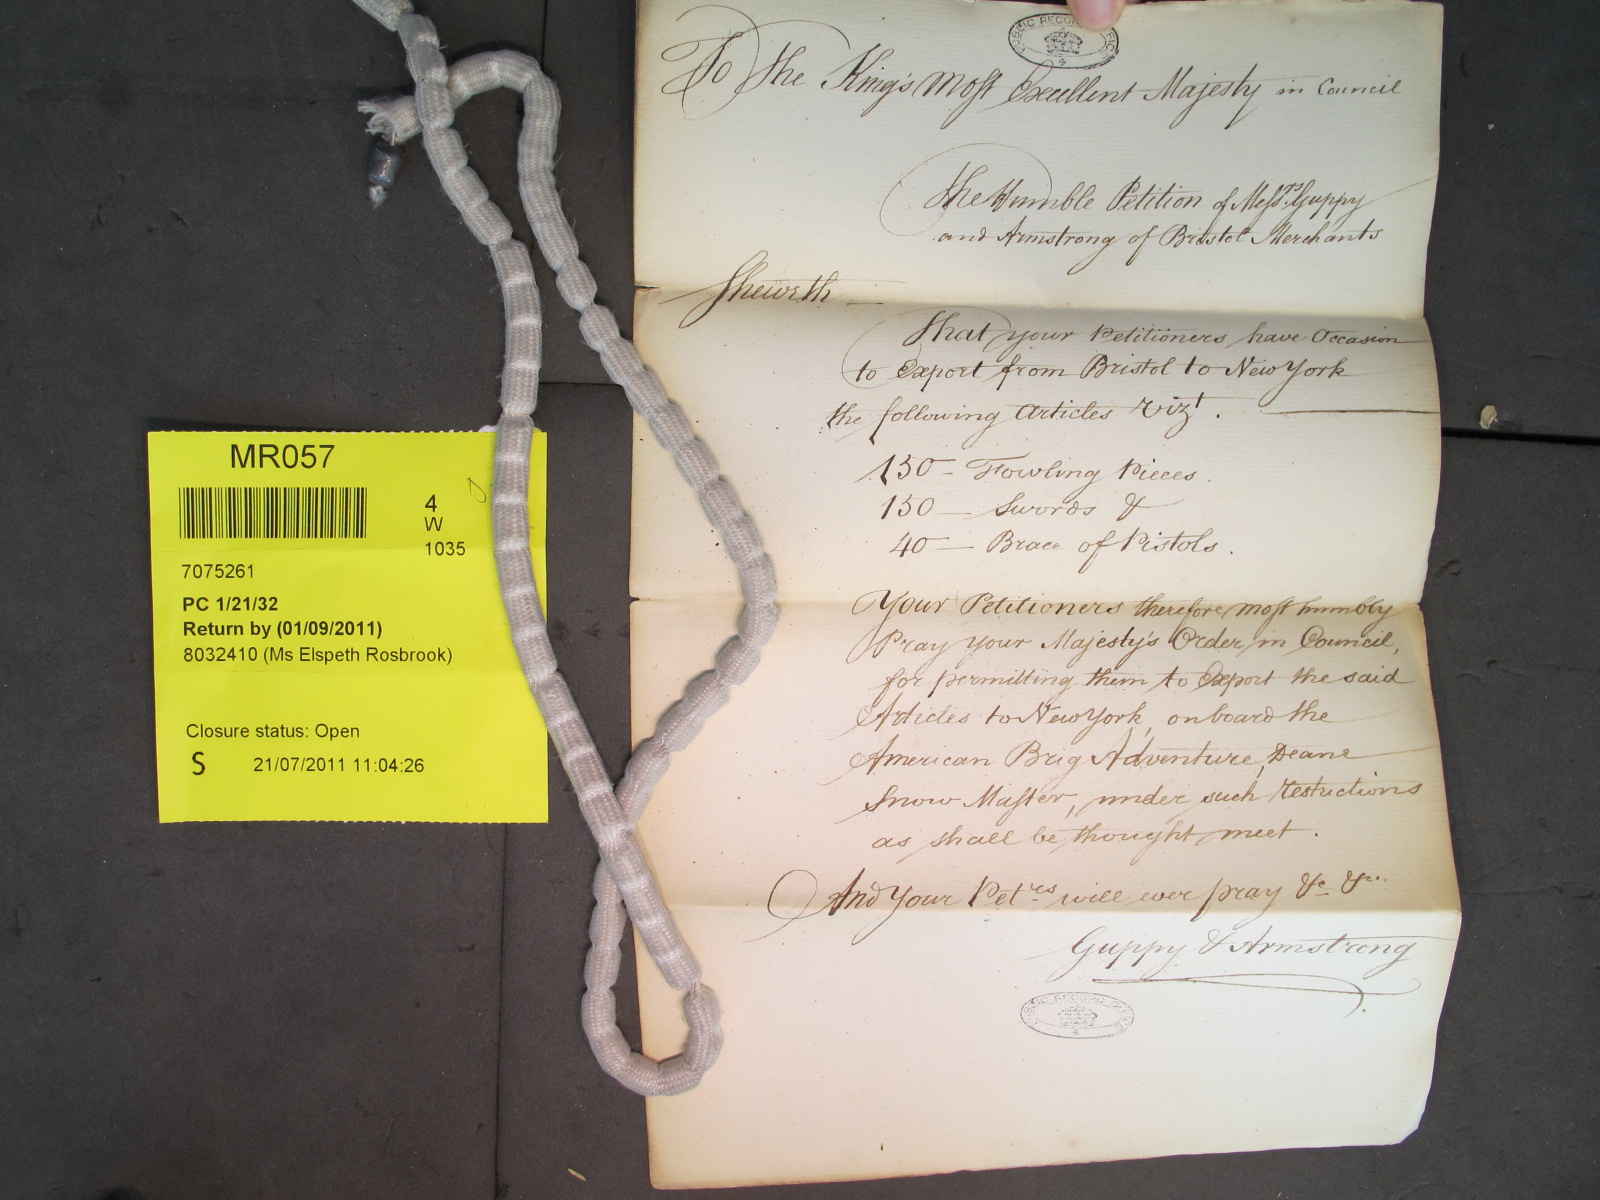 MR057
4
W
1035
7075261
PC 1/21/32
Return by (01/09/2011)
8032410 (Ms Elspeth Rosbrook)
Closure status: Open
S 21/07/2011 11:04:26
PUBLIC RECORD OFFICE
To the King's Most Excellent Majesty in Council
The Humble Petition of Messrs. Guppy
and Armstrong of Bristol Merchants
Sheweth
That your Petitioners have Occasion
to Export from Bristol to New York
the following Articles Vizt.
150 - Fowling Pieces.
150 - Swords &
40 - Brace of Pistols.
Your Petitioners therefore most humbly
Pray your Majesty's Order in Council,
for permitting them to Export the said
Articles to New York, on board the
American Brig Adventure, Deane
Snow Master, under such Restrictions
as shall be thought meet.
And Your Petrs will ever pray &c &c.
Guppy & Armstrong
PUBLIC RECORD OFFICE